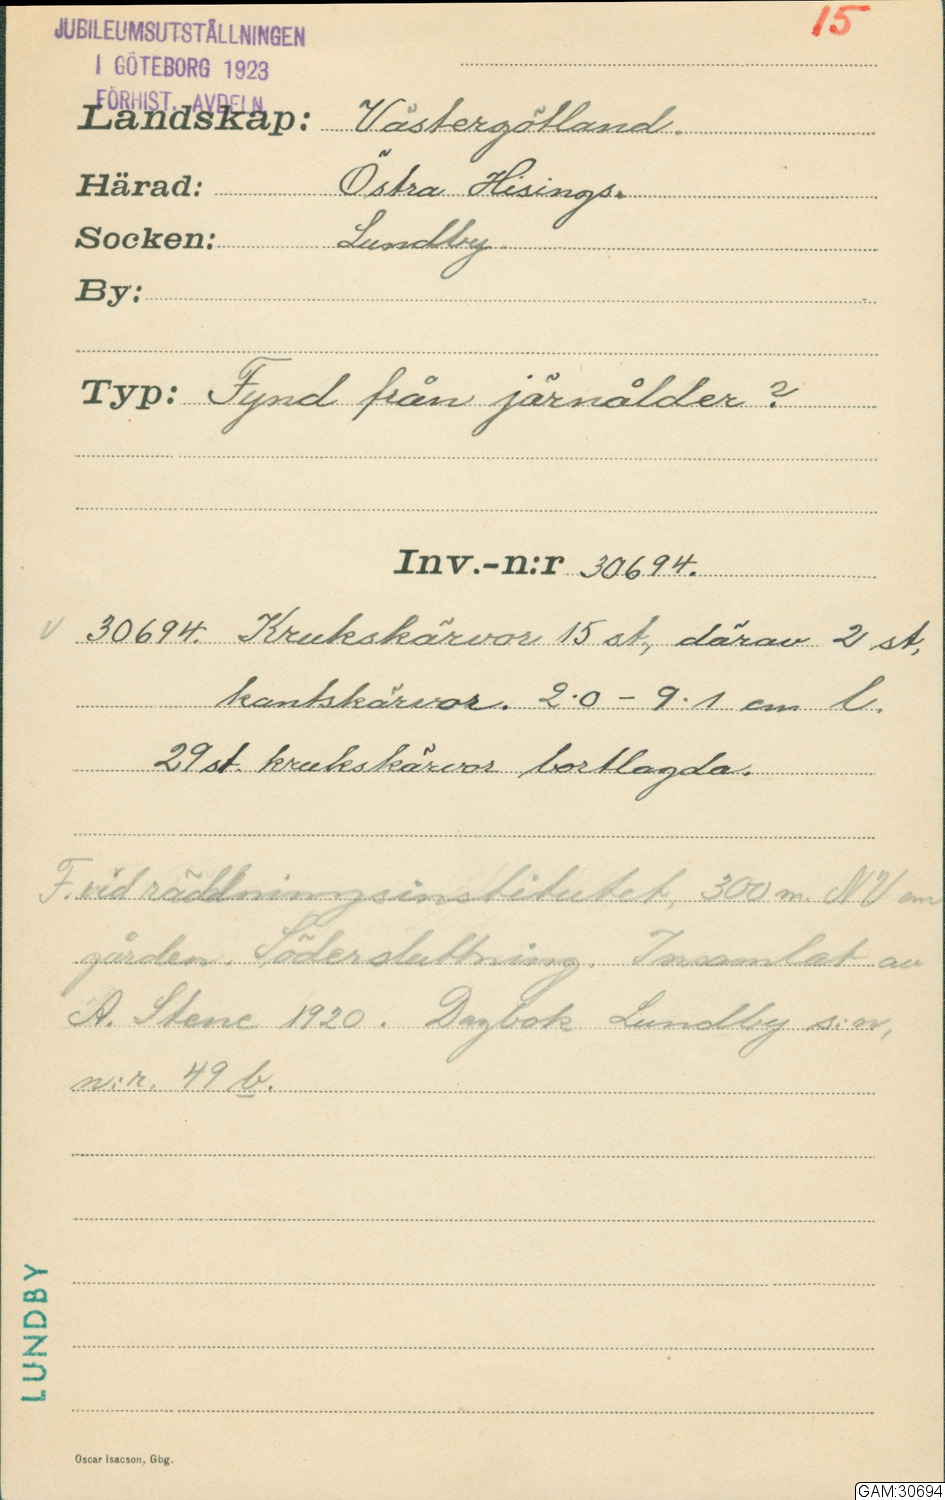 JUBILEUMSUTSTÄLLNINGEN
I GÖTEBORG 1923
FÖRHIST. AVDELN.
15
Landskap: Västergötland.
Härad: Östra Hisings.
Socken: Lundby.
By:
Typ: Fynd från järnålder?
Inv.-n:r 30694.
v 30694. Krukskärvor 15 st, därav 2 st,
kantskärvor. 2.0 - 9.1 cm l.
29 st. krukskärvor bortlagda.
F. vid räddningsinstitutet, 300 m. NV om
gården. Södersluttning. Insamlat av
A. Stene 1920. Dagbok Lundby s:n,
n:r. 49 b.
LUNDBY
Oscar Isacson, Gbg.
GAM:30694